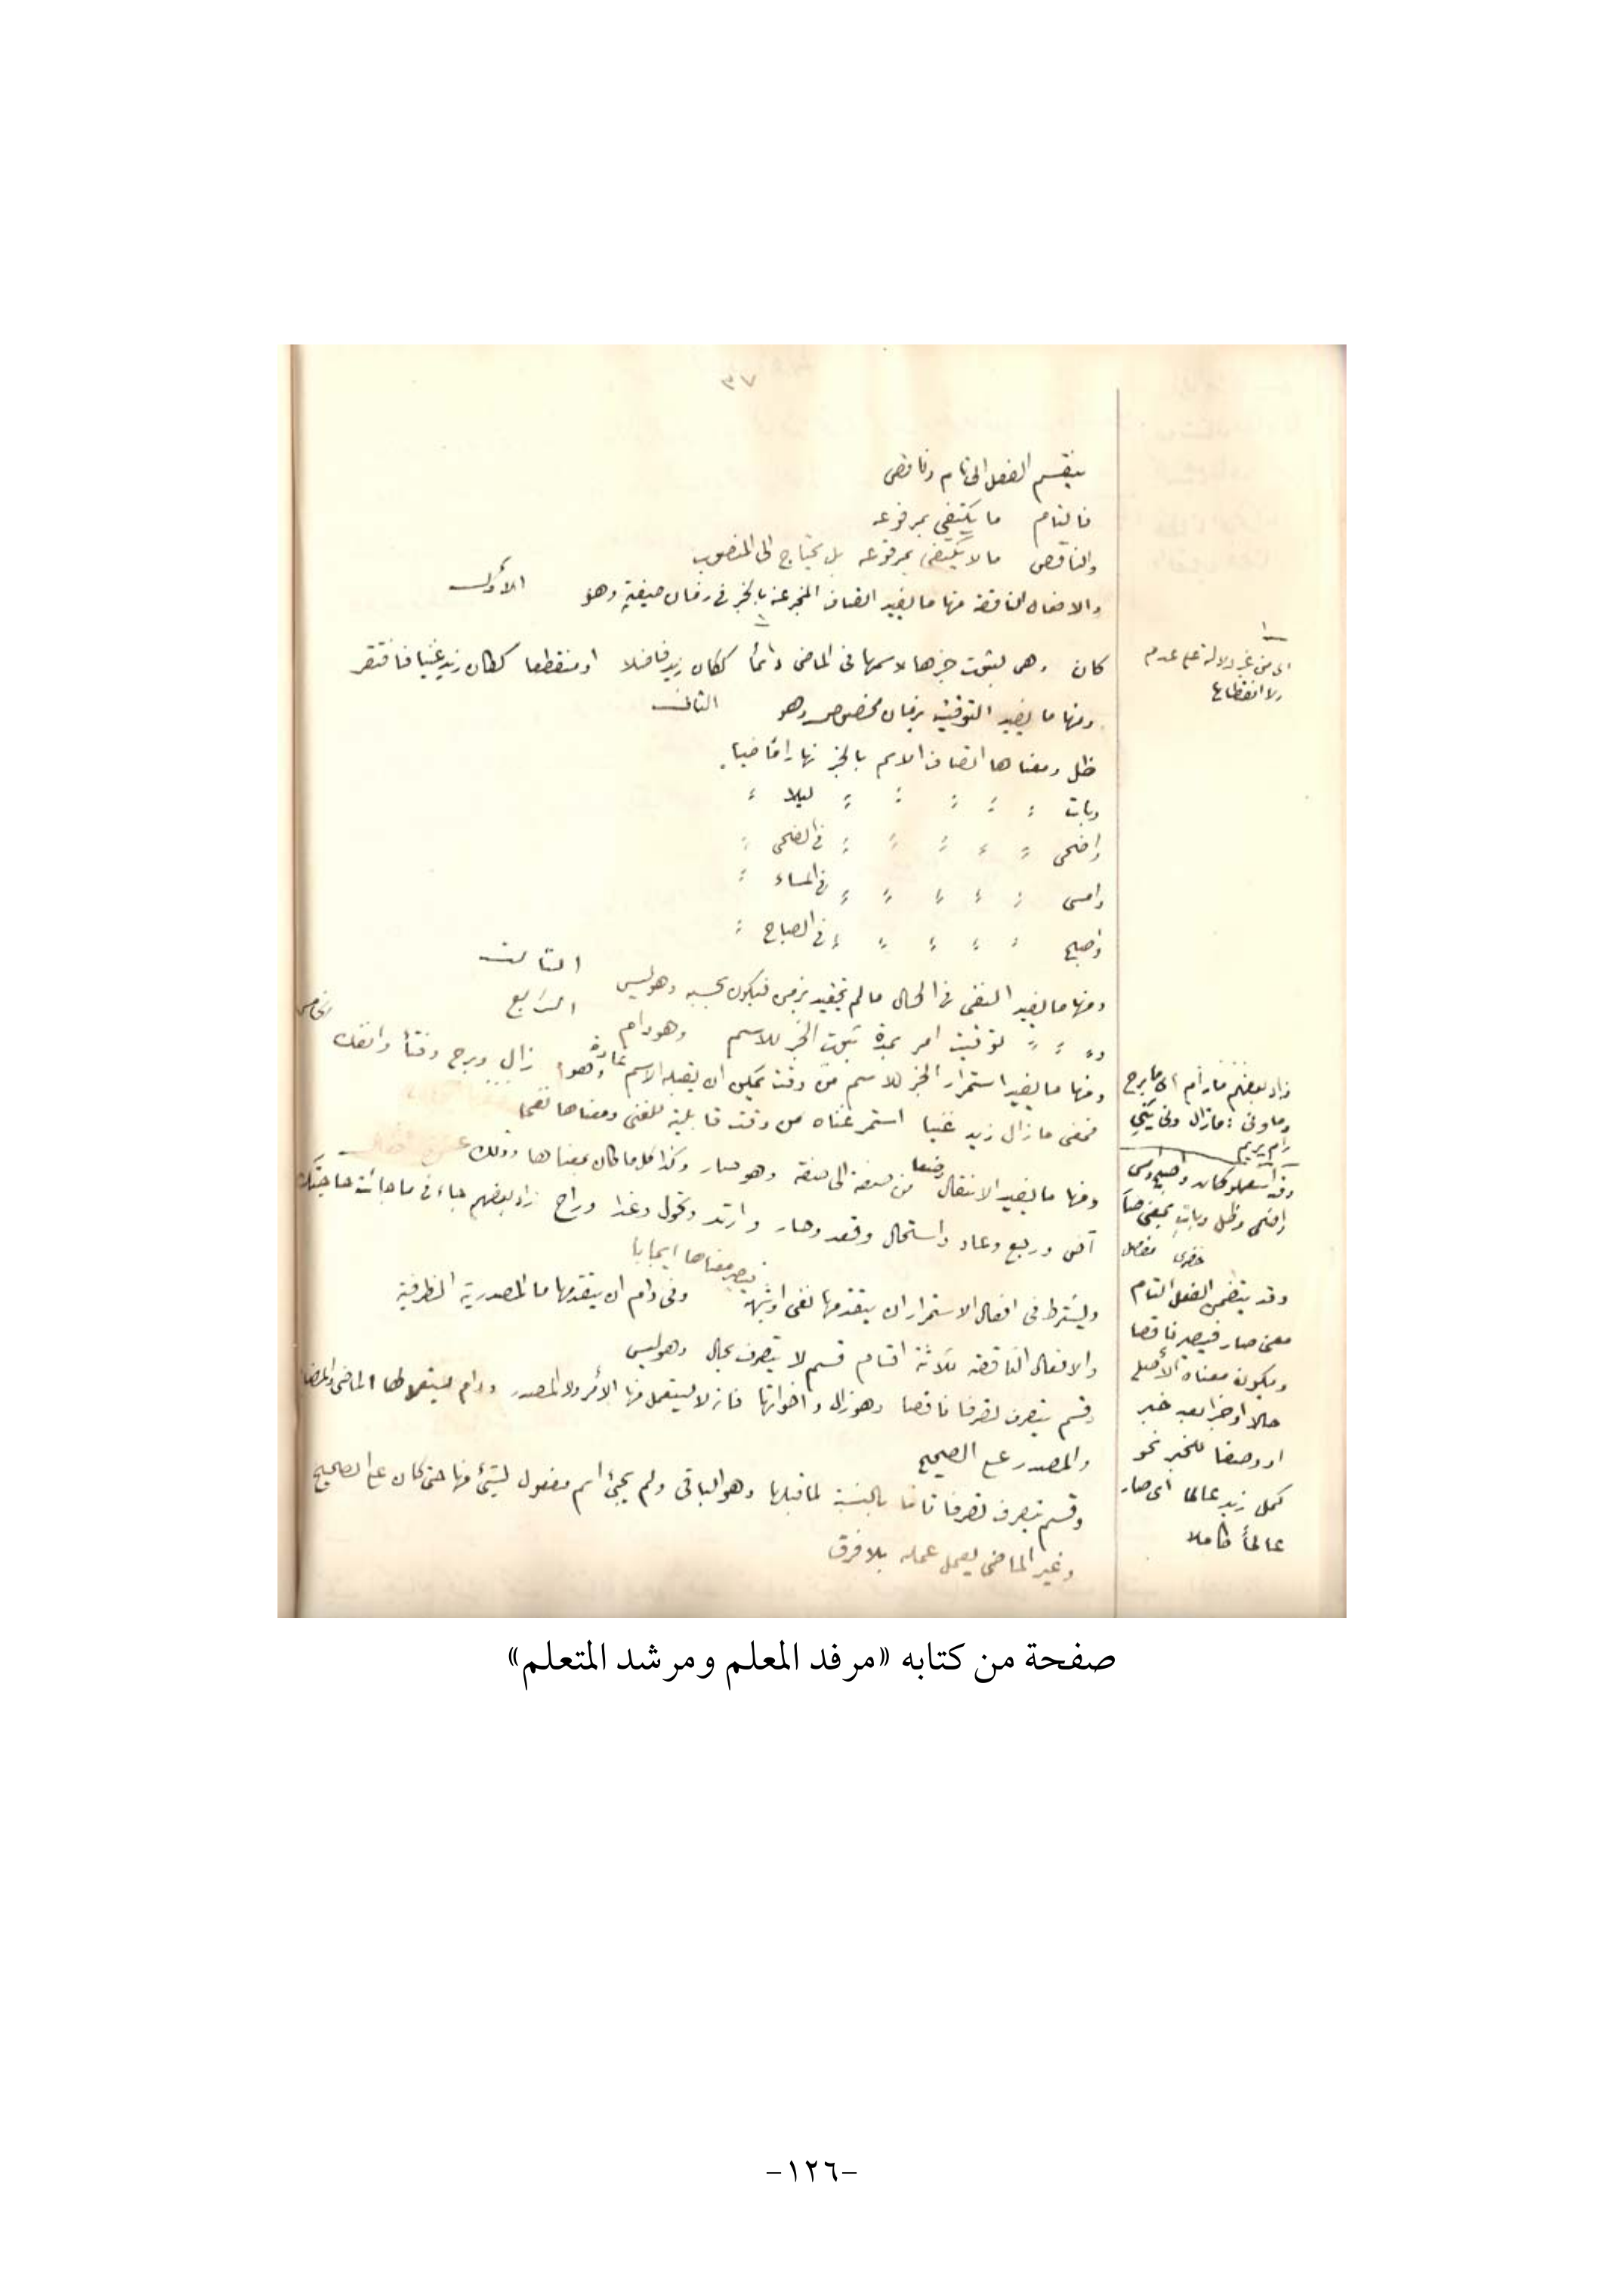 ٣٧
ينقسم الفعل الى تام وناقص
فالتام ما يكتفي بمرفوعه
والناقص ما لا يكتفي بمرفوعه بل يحتاج الى المنصوب
والافعال الناقصة منها ما يفيد اتصاف المخبر عنه بالخبر في زمان صيغته وهو الأول
كان وهى لثبوت خبرها لاسمها فى الماضى دائماً ككان زيد فاضلا او منقطعا ككان زيد غنيا فافتقر
ومنها ما يفيد التوقيت بزمان مخصوص وهو الثانى
ظل ومعناها اتصاف الاسم بالخبر نهارا ماضيا
وبات : : : : : ليلا :
واضحى : : : : : في الضحى :
وامسى : : : : : في المساء :
واصبح : : : : : في الصباح :
ومنها ما يفيد النفى فى الحال ما لم تقيد بزمن فيكون بحسبه وهو ليس الثالث
و : : : توقيت امر بمدة ثبوت الخبر للاسم وهو دام الرابع
ومنها ما يفيد استمرار الخبر للاسم من وقت يمكن ان يقبله الاسم عادة وهو زال وبرح وفتأ وانفك الخامس
فمعنى ما زال زيد غنيا استمر غناه من وقت قابليته للغنى ومعناها
ومنها ما يفيد الانتقال من صفة الى صفة وهو صار وكذا كل ما كان بمعناها وذلك
آض ورجع وعاد واستحال وقعد وحار وارتد وتحول وغدا وراح زاد بعضهم جاء في ما جاءت حاجتك
ويشترط فى افعال الاستمرار ان يتقدمها نفى او شبهه فيصير معناها ايجابا وفى دام ان يتقدمها ما المصدرية الظرفية
والافعال الناقصة ثلاثة اقسام قسم لا يتصرف بحال وهو ليس
وقسم يتصرف تصرفا ناقصا وهو زال واخواتها فانه لا يستعمل منها الأمر ولا المصدر ودام الماضى والمضارع
والمصدر على الصحيح
وقسم يتصرف تصرفا تاما بالنسبة لما قبلها وهو الباقى ولم يجئ اسم مفعول لشئ منها حتى كان على الصحيح
وغير الماضى يعمل عمله بلا فرق
١
اى من غير دلالة على عدم
ولا انقطاع
زاد بعضهم ما رام اى ما برح
وما ونى : ما زال ونى يني
رام يريم
وقد استعملو كان واصبح وامسى
واضحى وظل وبات بمعنى صار
خضرى مفصل
وقد يتضمن الفعل التام
معنى صار فيصير ناقصا
ويكون معناه الأصلى
حالا او خبرا بعد خبر
او وصفا للخبر نحو
كمل زيد عالما اى صار
عالماً كاملا
صفحة من كتابه «مرفد المعلم ومرشد المتعلم»
-١٢٦-